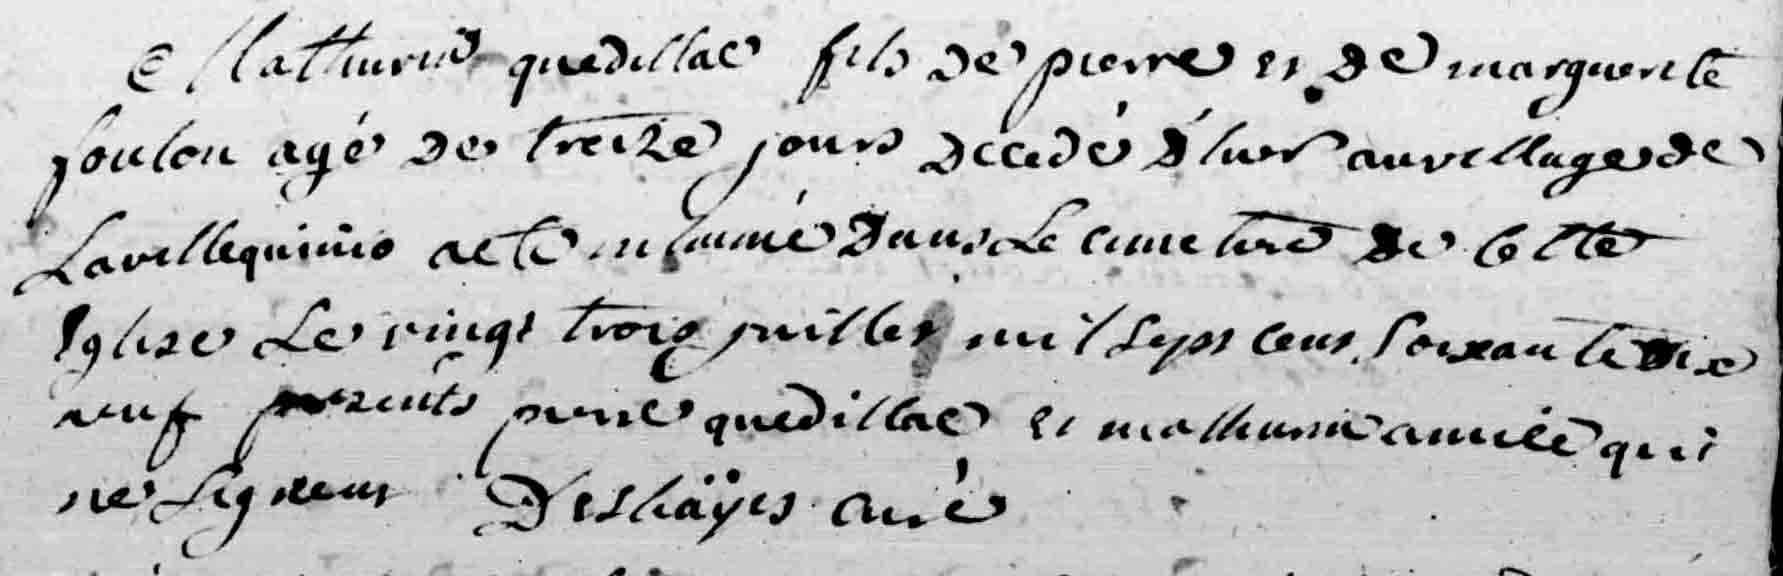 Mathurin quedillac fils de pierre et de marguerite
foulon agé de treize jours decedé d'hier au village de
Lavillequinio a eté inhumé dans Le cimetire de Cette
Eglise Le vingt trois juillet mil sept cens soixante dix
neuf presents pierre quedillac et mathurin amicé qui
ne signent Deshayes curé